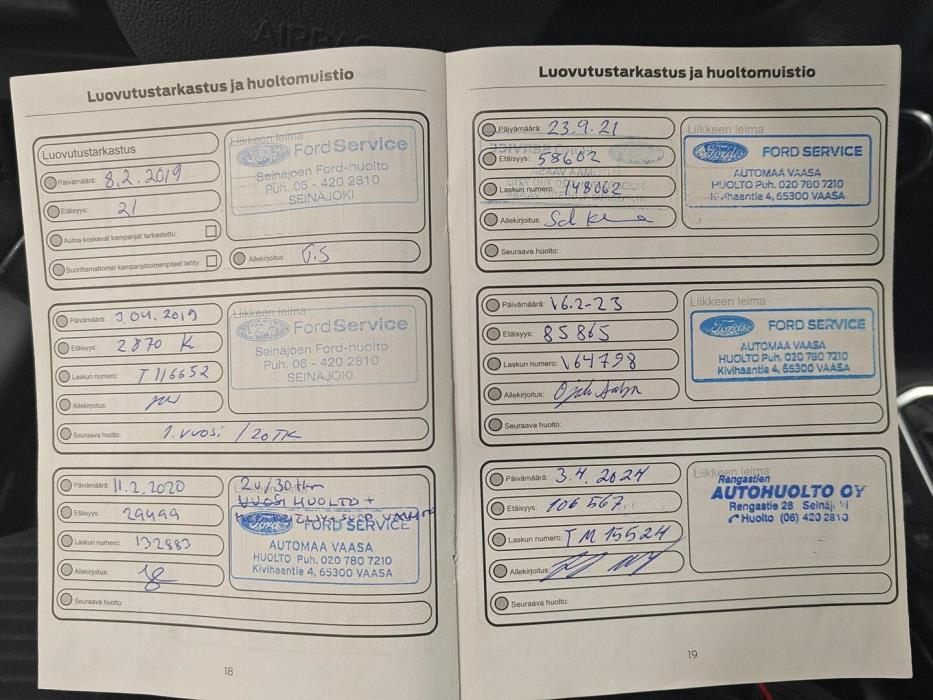 AIRBAG
Luovutustarkastus ja huoltomuistio
Luovutustarkastus
Päivämäärä: 8.2.2019
Etäisyys: 21
Autoa koskevat kampanjat tarkastettu:
Suorittamattomat kampanjatoimenpiteet tehty:
Liikkeen leima
Ford Service
Seinäjoen Ford-huolto
Puh. 06 - 420 2810
SEINÄJOKI
Allekirjoitus:
Päivämäärä: 3.04.2019
Etäisyys: 2870 K
Laskun numero: T116652
Allekirjoitus:
Seuraava huolto: 1. vuosi / 20 TK
Liikkeen leima
Ford Service
Seinäjoen Ford-huolto
Puh. 06 - 420 2810
SEINÄJOKI
Päivämäärä: 11.2.2020
Etäisyys: 29499
Laskun numero: 132883
Allekirjoitus:
Seuraava huolto:
2v/30tkm
VUOSIHUOLTO +
Ford FORD SERVICE
AUTOMAA VAASA
HUOLTO Puh. 020 780 7210
Kivihaantie 4, 65300 VAASA
18
Luovutustarkastus ja huoltomuistio
Päivämäärä: 23.9.21
Etäisyys: 58602
Laskun numero: 148062
Allekirjoitus:
Seuraava huolto:
Liikkeen leima
Ford FORD SERVICE
AUTOMAA VAASA
HUOLTO Puh. 020 780 7210
Kivihaantie 4, 65300 VAASA
Päivämäärä: 16.2-23
Etäisyys: 85865
Laskun numero: 164798
Allekirjoitus:
Seuraava huolto:
Liikkeen leima
Ford FORD SERVICE
AUTOMAA VAASA
HUOLTO Puh. 020 780 7210
Kivihaantie 4, 65300 VAASA
Päivämäärä: 3.4.2024
Etäisyys: 106567
Laskun numero: TM15524
Allekirjoitus:
Seuraava huolto:
Liikkeen leima
Rengastien
AUTOHUOLTO OY
Rengastie 28
Huolto (06) 420 2810
19